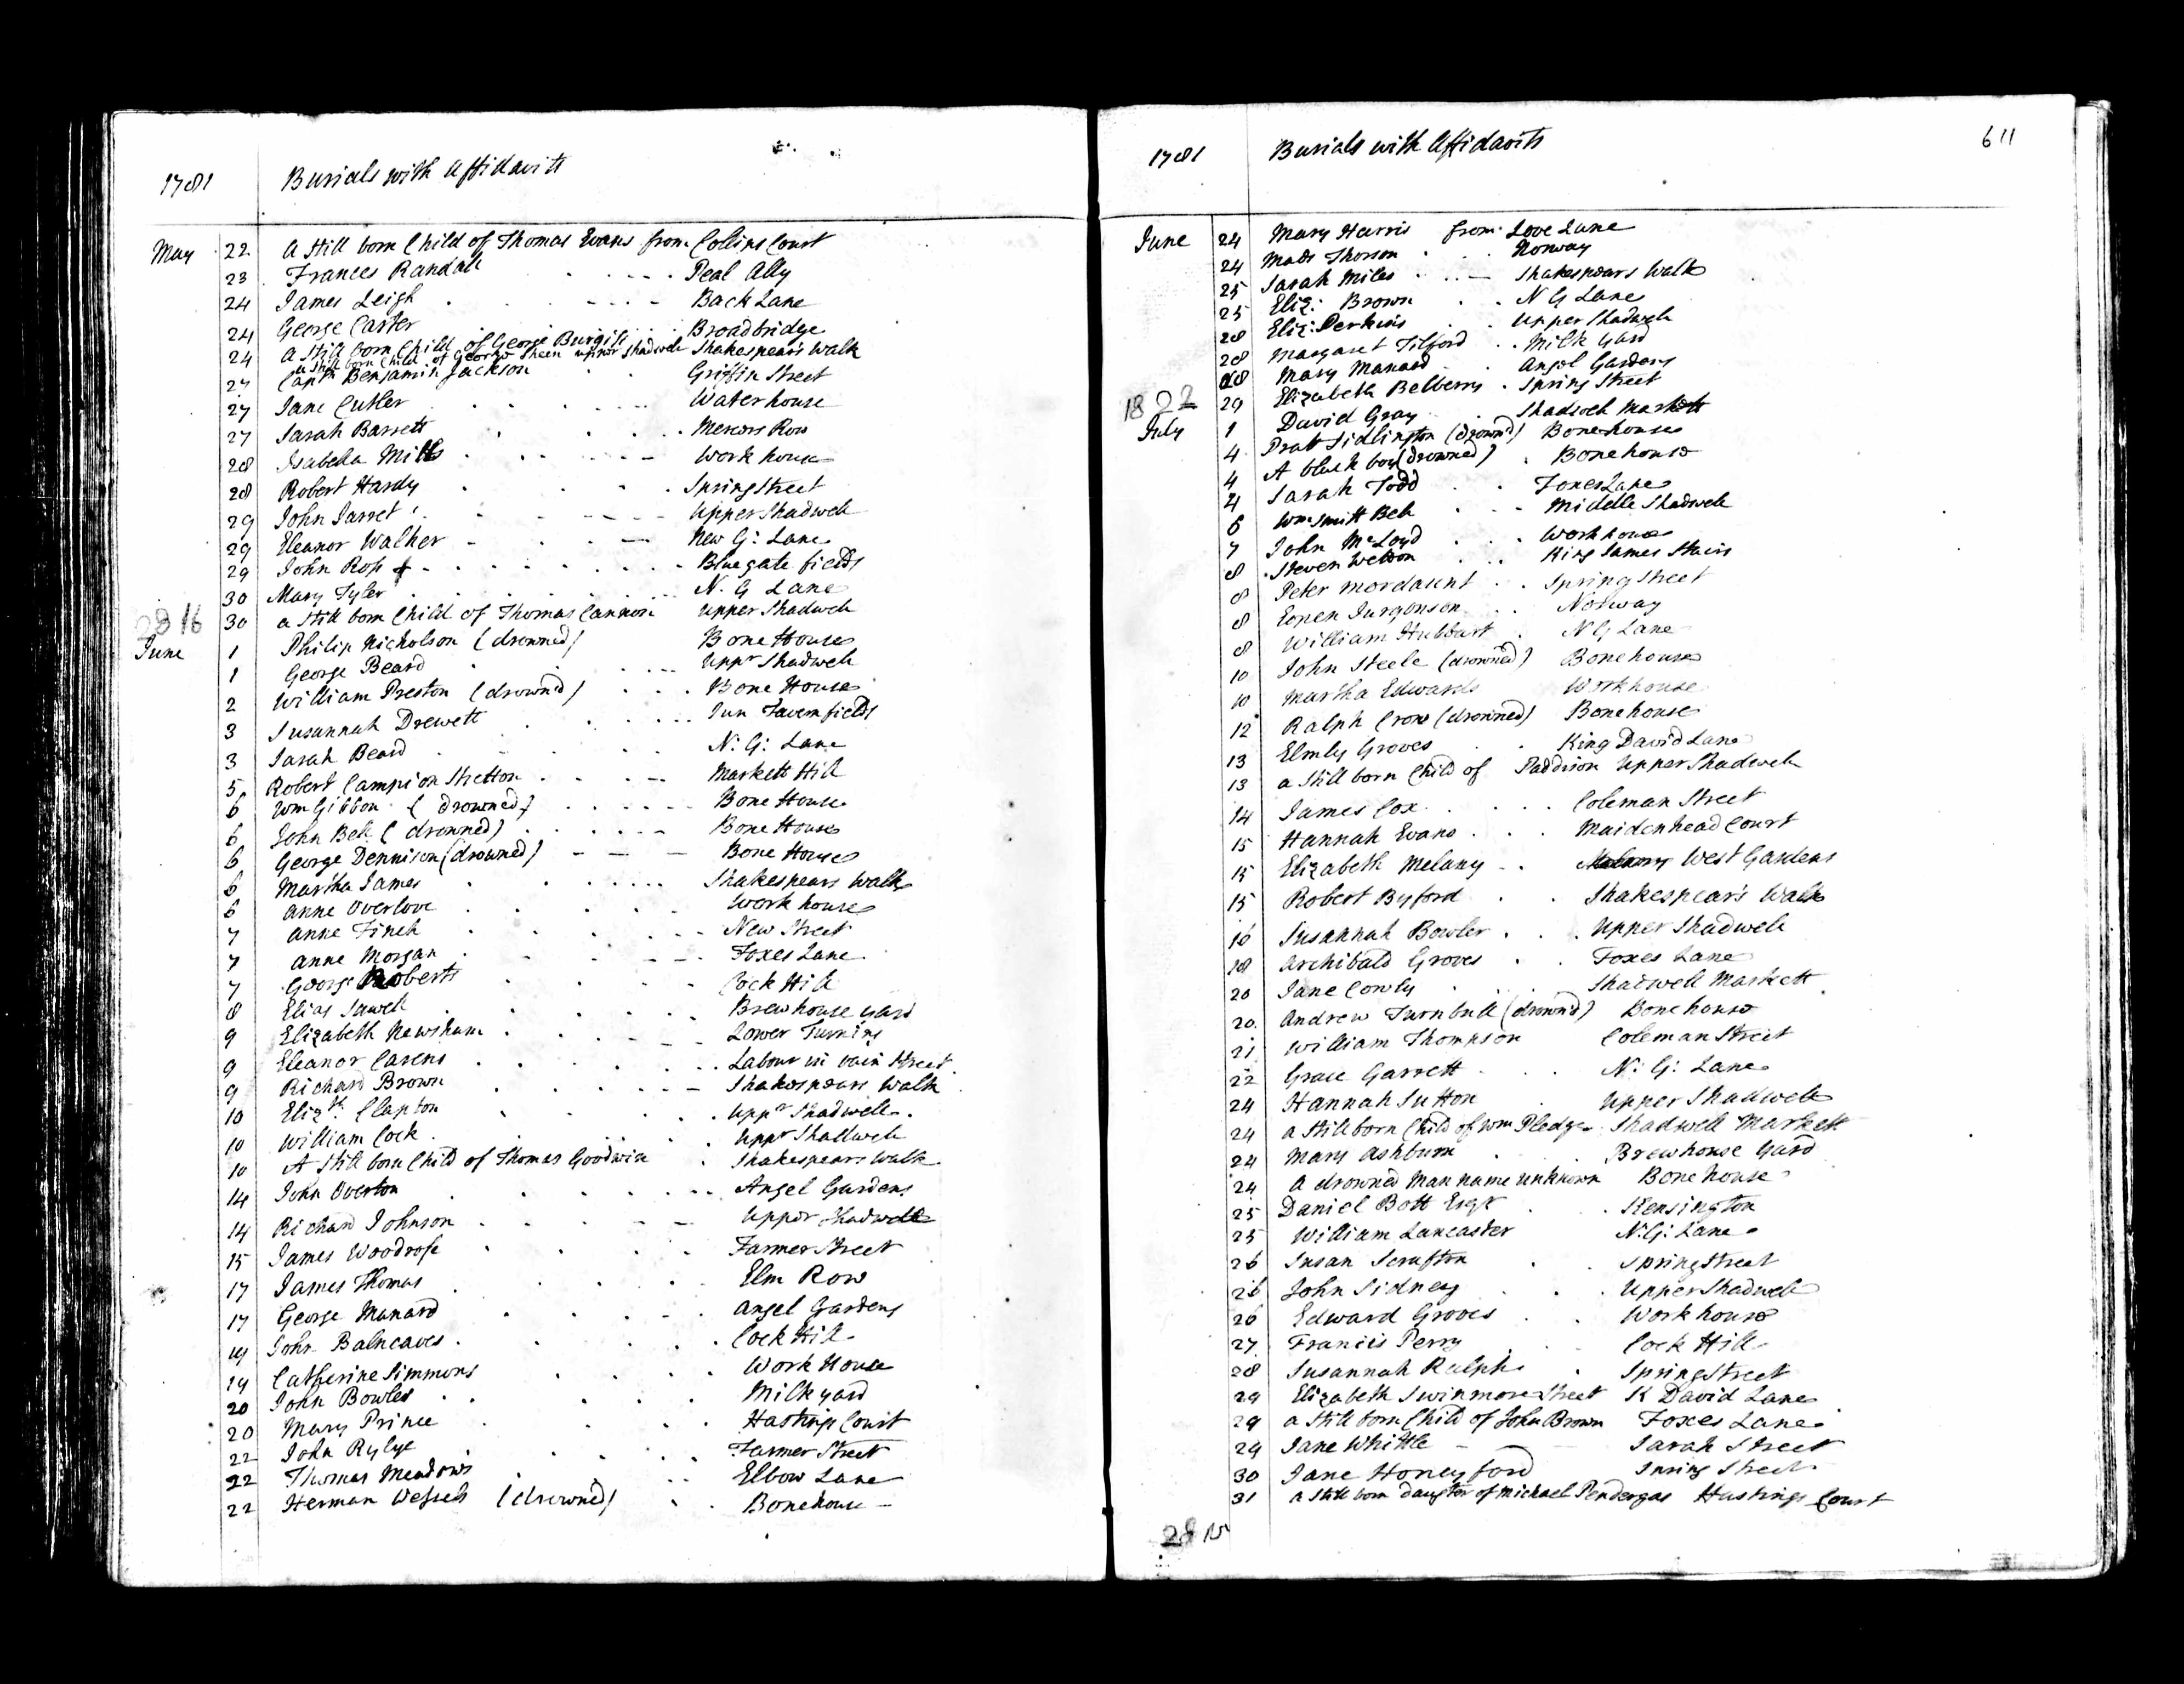 1781 Burials with Affidavits
May 22 a Still born Child of Thomas Evans from Collins Court
23 Frances Randall Peal Ally
24 James Leigh Back Lane
24 George Carter Broadbridge
24 a Still born Child of George Burgiss Shakespear's Walk
a Still born Child of George Sheen upper Shadwell
27 Captn Benjamin Jackson Griffin Street
27 Jane Cutler Waterhouse
27 Sarah Barrett Mercers Row
28 Isabella Mills Work house
28 Robert Hardy Spring Street
29 John Jarret Upper Shadwell
29 Eleanor Walker New G: Lane
29 John Ross Bluegate fields
30 Mary Tyler N. G Lane
30 a Still born Child of Thomas Cannon upper Shadwell
2816
June 1 Philip Nicholson (drowned) Bone House
1 George Beard Uppr Shadwell
2 William Preston (drowned) Bone House
3 Susannah Drewett Sun Tavern fields
3 Sarah Beard N: G: Lane
5 Robert Campion Stretton Markett Hill
6 Wm Gibbon (drowned) Bone House
6 John Bell (drowned) Bone House
6 George Dennison (drowned) Bone House
6 Martha James Shakespears Walk
6 Anne Overlove Work house
7 Anne Finch New Street
7 Anne Morgan Foxes Lane
7 George Roberts Cock Hill
8 Elias Sawell Brewhouse yard
9 Elizabeth Newsham Lower Turning
9 Eleanor Carens Labour in vain Street
9 Richard Brown Shakespears Walk
10 Elizth Clapton Uppr Shadwell
10 William Cock Uppr Shadwell
10 A Still born Child of Thomas Goodwin Shakespears Walk
14 John Overton Angel Gardens
14 Richard Johnson Upper Shadwell
15 James Woodrofe Farmer Street
17 James Thomas Elm Row
17 George Manard Angel Gardens
19 John Balneaves Cock Hill
19 Catherine Simmons Work House
20 John Bowles Milk yard
20 Mary Prince Hastings Court
22 John Rylye Farmer Street
22 Thomas Meadows Elbow Lane
22 Herman Wessels (drowned) Bonehouse
1781 Burials with Affidavits 611
June 24 Mary Harris from Love Lane
24 Mads Thorson Norway
25 Sarah Miles Shakespears Walk
25 Eliz: Brown N G Lane
28 Eliz: Perkins Upper Shadwell
28 Margaret Tilford Milk Yard
28 Mary Manard Angel Gardens
29 Elizabeth Belberry Spring Street
1822
July 1 David Gray Shadwell Markett
4 Pratt Sidlington (drown'd) Bonehouse
4 A black boy (drowned) Bonehouse
4 Sarah Todd Foxes Lane
6 Wm Smitt Bell Middle Shadwell
7 John McLoyd Workhouse
8 Steven Welton King James Stairs
8 Peter Mordaunt Spring Street
8 Espen Jurgenson Norway
8 William Hubbart N G Lane
10 John Steele (drowned) Bonehouse
10 Martha Edwards Workhouse
12 Ralph Crow (drowned) Bonehouse
13 Elmly Groves King David Lane
13 a Still born Child of Paddison Upper Shadwell
14 James Cox Coleman Street
15 Hannah Evans Maidenhead Court
15 Elizabeth Melany West Gardens
15 Robert Byford Shakespear's Walk
16 Susannah Bowler Upper Shadwell
18 Archibald Groves Foxes Lane
20 Jane Cowly Shadwell Markett
20 Andrew Turnbull (drown'd) Bonehouse
21 William Thompson Coleman Street
22 Grace Garrett N: G: Lane
24 Hannah Sutton Upper Shadwell
24 a Still born Child of Wm Pledge Shadwell Markett
24 Mary Ashburn Brewhouse Yard
24 A drowned Man name unknown Bonehouse
25 Daniel Bott Esqr Kensington
25 William Lancaster N: G: Lane
26 Susan Scrafton Spring Street
26 John Sidney Upper Shadwell
26 Edward Groves Work house
27 Francis Perry Cock Hill
28 Susannah Ralph Spring Street
29 Elizabeth Swinmore Street K David Lane
29 a Still born Child of John Brown Foxes Lane
29 Jane Whittle Sarah Street
30 Jane Honeyford Spring Street
31 a Still born daugter of Michael Pendergas Hastings Court
2815